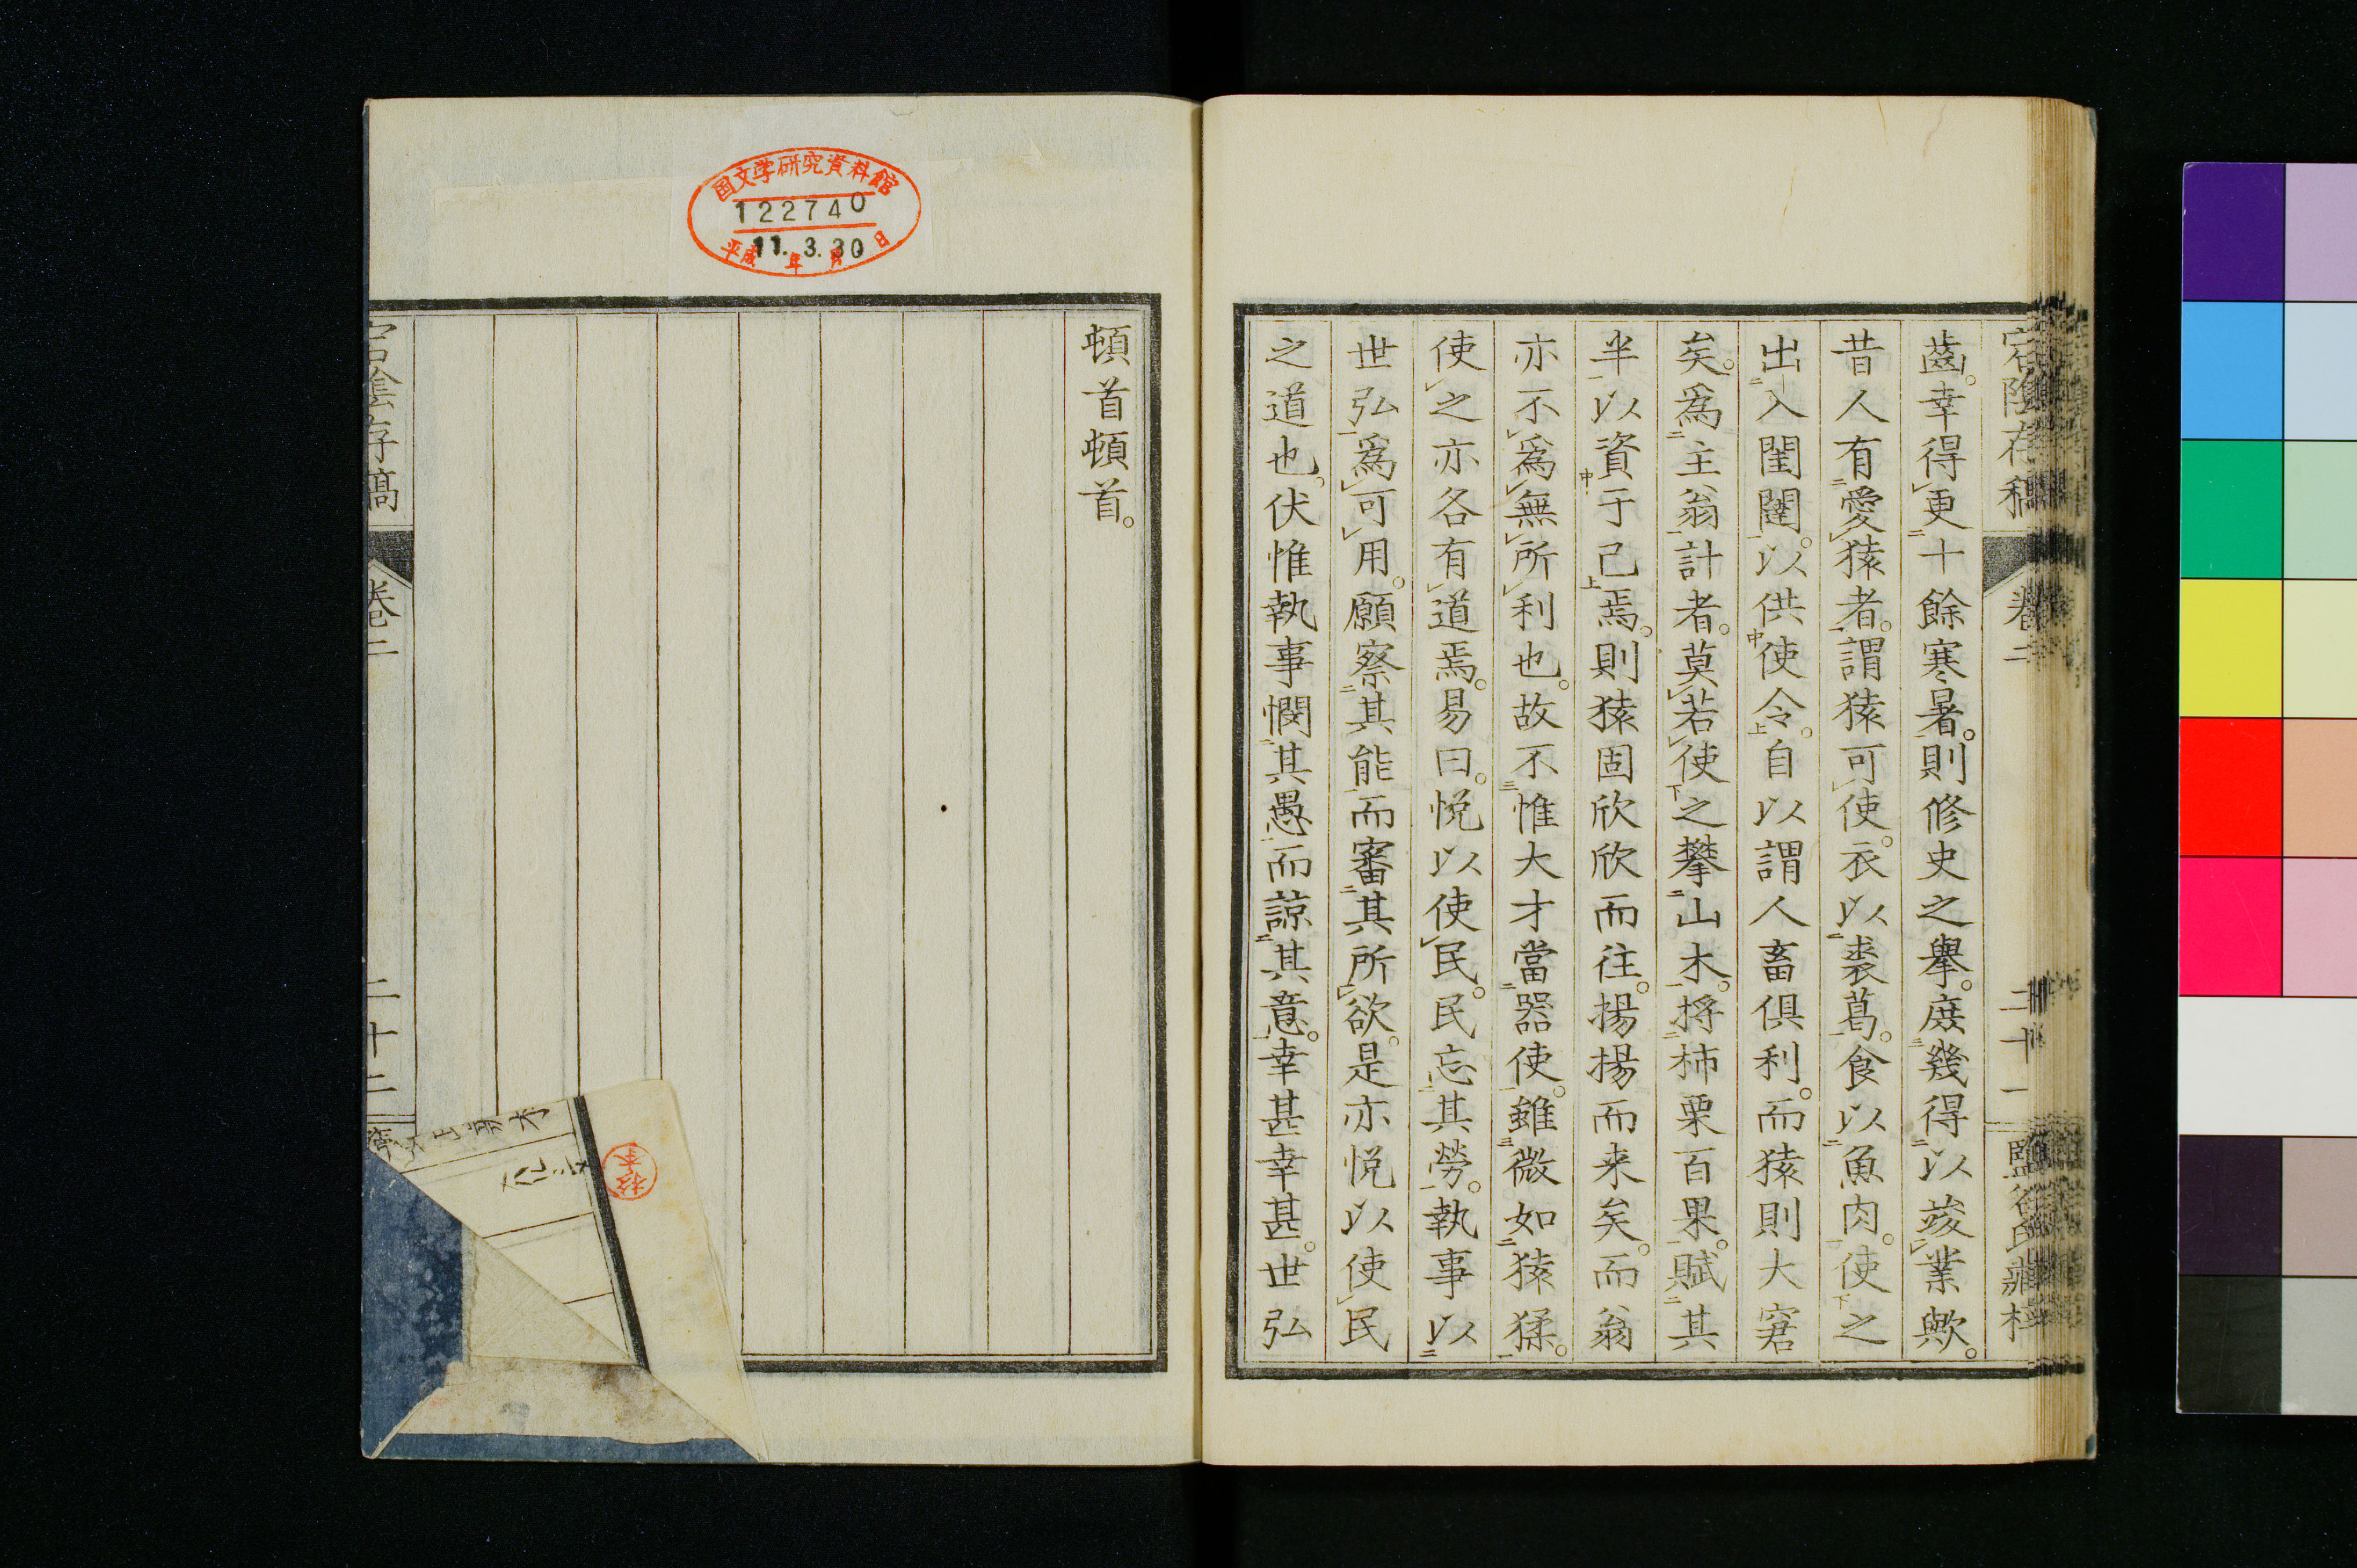 宕陰存稿 卷二 二十一 鹽谷氏藏梓
齒。幸得更十餘寒暑。則修史之擧。庶幾得以竣業歟。
昔人有愛猿者。謂猿可使。衣以裘葛。食以魚肉。使之
出入閨闥。以供使令。自以謂人畜俱利。而猿則大窘
矣。爲主翁計者。莫若使之攀山木。捋柿栗百果。賦其
半以資于己焉。則猿固欣欣而往。揚揚而来矣。而翁
亦不爲無所利也。故不惟大才當器使。雖微如猿猱。
使之亦各有道焉。易曰。悅以使民。民忘其勞。執事以
世弘爲可用。願察其能而審其所欲。是亦悅以使民
之道也。伏惟執事憫其愚而諒其意。幸甚幸甚。世弘
頓首頓首。
国文学研究資料館
122740
平成11年3月30日
宕陰存稿 卷二 二十二